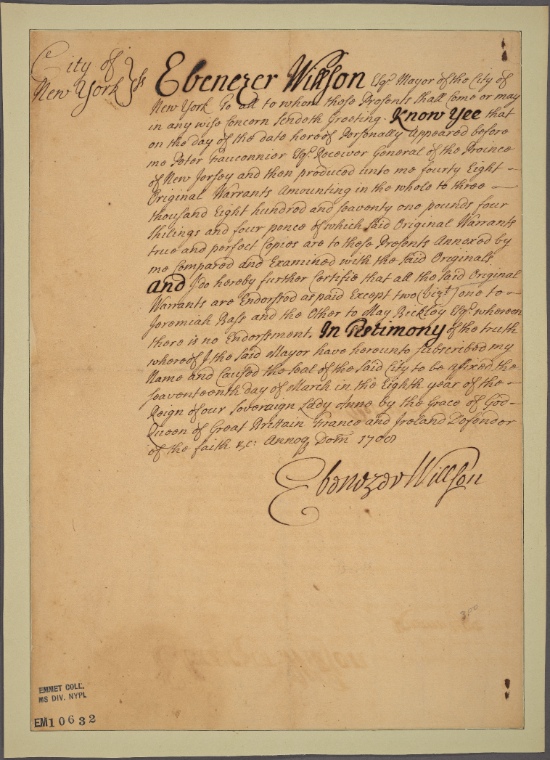 City of
New York } ss
Ebenezer Willson Esqr. Mayor of the City of
New York To all to whom these Presents shall Come or may
in any wise Concern Sendeth Greeting. Know Yee that
on the day of the date hereof Personally Appeared before
me Peter Fauconnier Esqr. Receiver General of the Province
of New Jersey and then produced unto me fourty Eight —
Original Warrants Amounting in the whole to three —
thousand Eight hundred and seaventy one pounds four
shillings and four pence of which said Original Warrants
true and perfect Copies are to these Presents Annexed by
me Compared and Examined with the said Originalls
And I do hereby further Certifie that all the said Original
Warrants are Endorsed as paid Except two (vizt.) one to —
Jeremiah Bass and the Other to May Bickley Esqr. whereon
there is no Endorsement. In Testimony of the truth
whereof I the said Mayor have hereunto subscribed my
Name and Caused the seal of the said City to be afixed the
seaventeenth day of March in the Eighth year of the —
Reign of our Sovereign Lady Anne by the Grace of God —
Queen of Great Brittain France and Ireland Defender
of the faith &c: Annoq Dom: 1708
Ebenezer Willson
EMMET COLL.
MS DIV. NYPL
EM10632